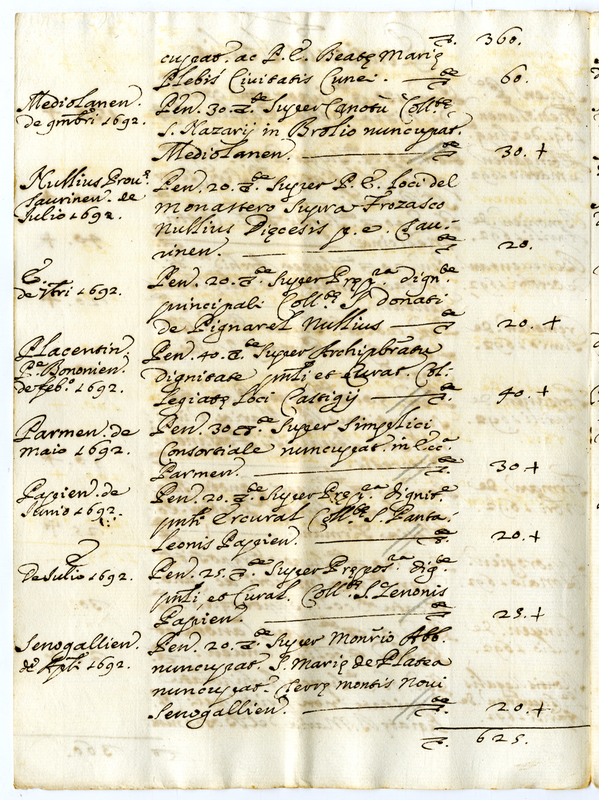 360.
cupat. ac P. E. Beatę Marię
Plebis Civitatis Cunei. 60.
Mediolanen. Pen. 30 Super Canotu Coll.
de 1692. S. Nazarij in Brolio nuncupat.
Mediolanen. 30. +
Nullius Prov. Pen. 20. Super P. E. Loci del
Taurinen. de Monastero Supra Frozasco
Julio 1692. Nullius Dięcesis p. e. Tau-
rinen. 20.
E. Pen. 20. Super Pręp. dign.
de 1692. principali Coll. S. Donati
de Pignarel Nullius 20. +
Placentin. Pen. 40. Super Archipbratu
Bononien. dignitate pnli et Curat. Col-
de feb. 1692. legiatę Loci Castigij 40. +
Parmen. de Pen. 30 Super Simplici
maio 1692. Consortiale nuncupat. in Ecc.
Parmen. 30 +
Papien. de Pen. 20. Super Pręp. dignit.
Junio 1692. pnli et Curat Coll. S. Panta-
leonis Papien. 20. +
De Julio 1692. Pen. 25. Super Prępos. dig.
pnli, et Curat. Coll. S. Zenonis
Papien. 25. +
Senogallien. Pen. 20. Super Monrio Abb.
1692. nuncupat. S. Marię de Platea
nuncupat. Terrę Montis Novi
Senogallien. 20. +
625.